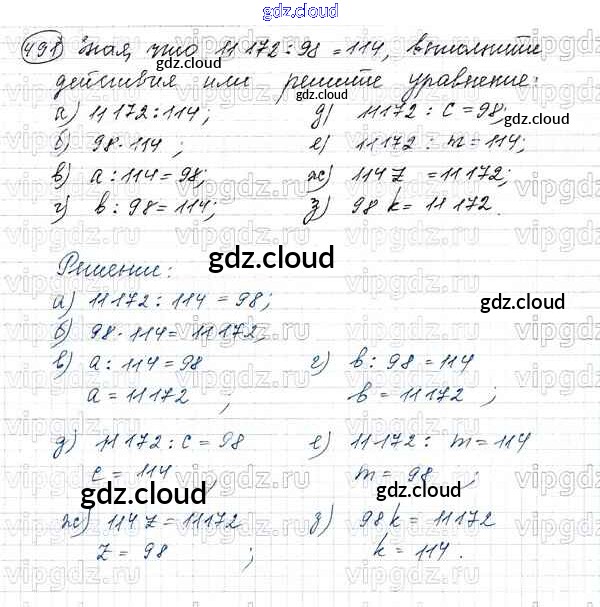 gdz.cloud
491 Зная, что 11172:98=114, выполните
действия или решите уравнение:
а) 11172:114;
д) 11172:c=98;
б) 98·114;
е) 11172:m=114;
в) a:114=98;
ж) 114z=11172;
г) b:98=114;
з) 98k=11172.
Решение:
а) 11172:114=98;
б) 98·114=11172;
в) a:114=98
г) b:98=114
a=11172;
b=11172;
д) 11172:c=98
е) 11172:m=114
c=114;
m=98;
ж) 114z=11172
з) 98k=11172
z=98;
k=114.
gdz.cloud
gdz.cloud
gdz.cloud
gdz.cloud
gdz.cloud
gdz.cloud
gdz.cloud
gdz.cloud
gdz.cloud
vipgdz.ru